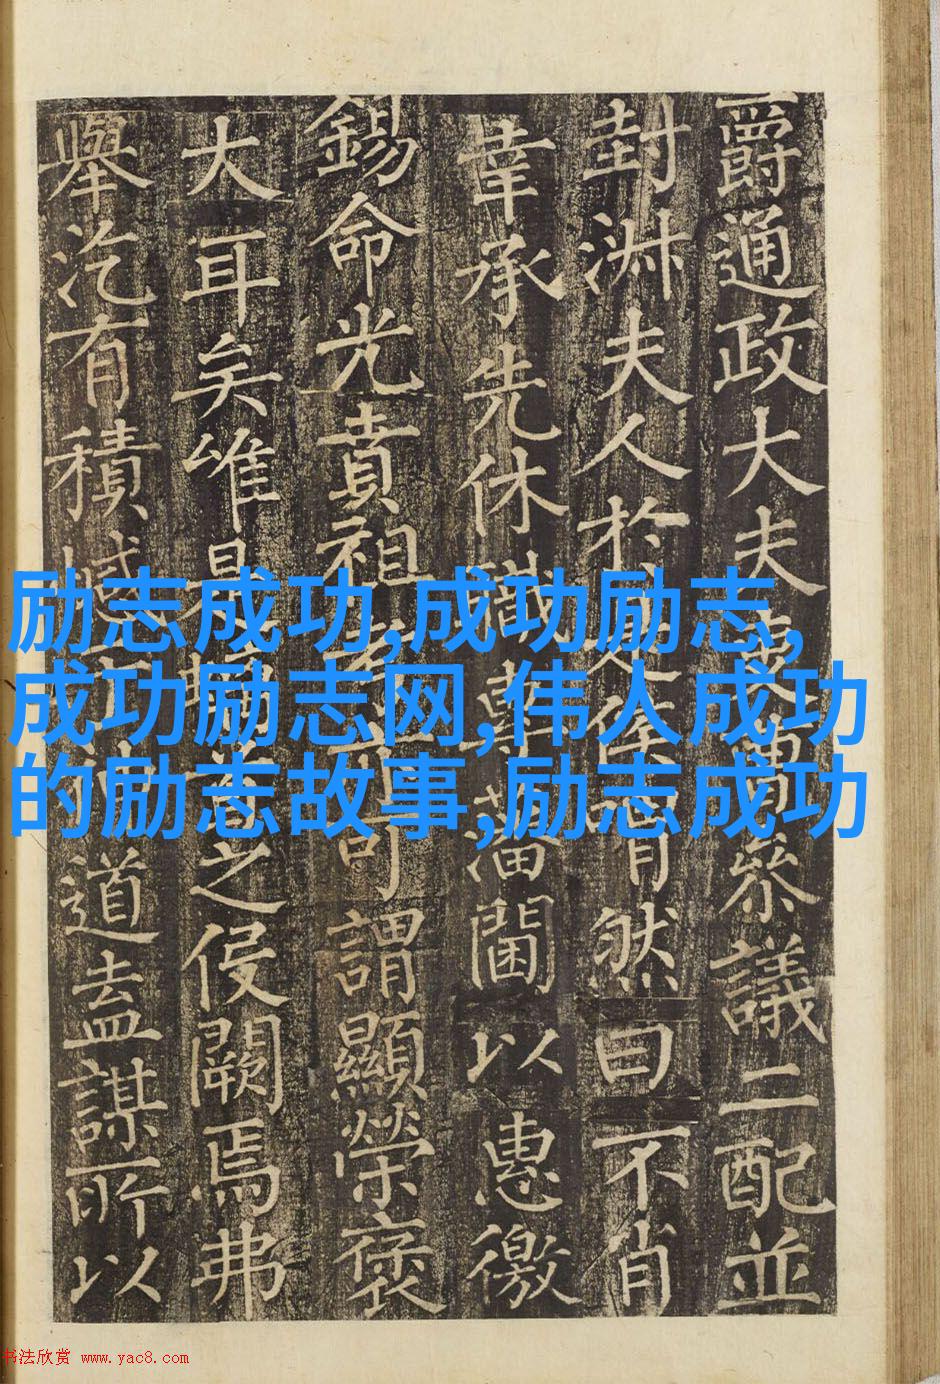 爵通政大夫參議二配並
封淑夫人於然曰不肖
幸承先休藩閫以惠徼
錫命光賁祖可謂顯榮褒
大耳矣唯是之侵闕焉弗
舉汔有積道盍謀所以
励志成功,成功励志,
成功励志网,伟人成功
的励志故事,励志成功
书法欣赏 www.yac8.com